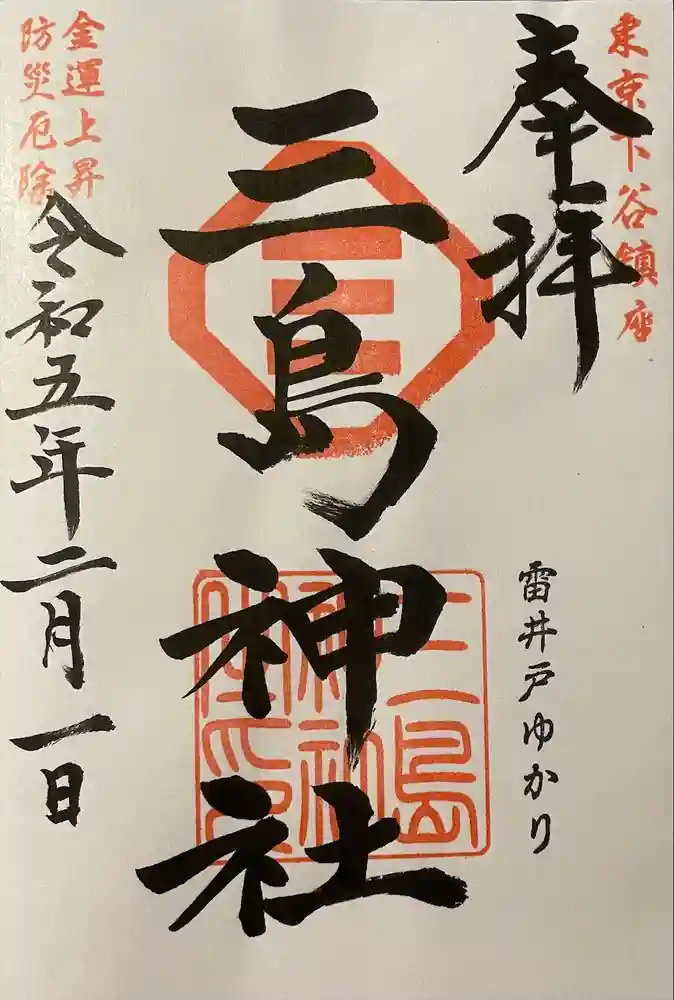 東京下谷鎮座
奉拝
雷井戸ゆかり
三島神社
三島
神社
金運上昇
防災厄除
令和五年二月一日